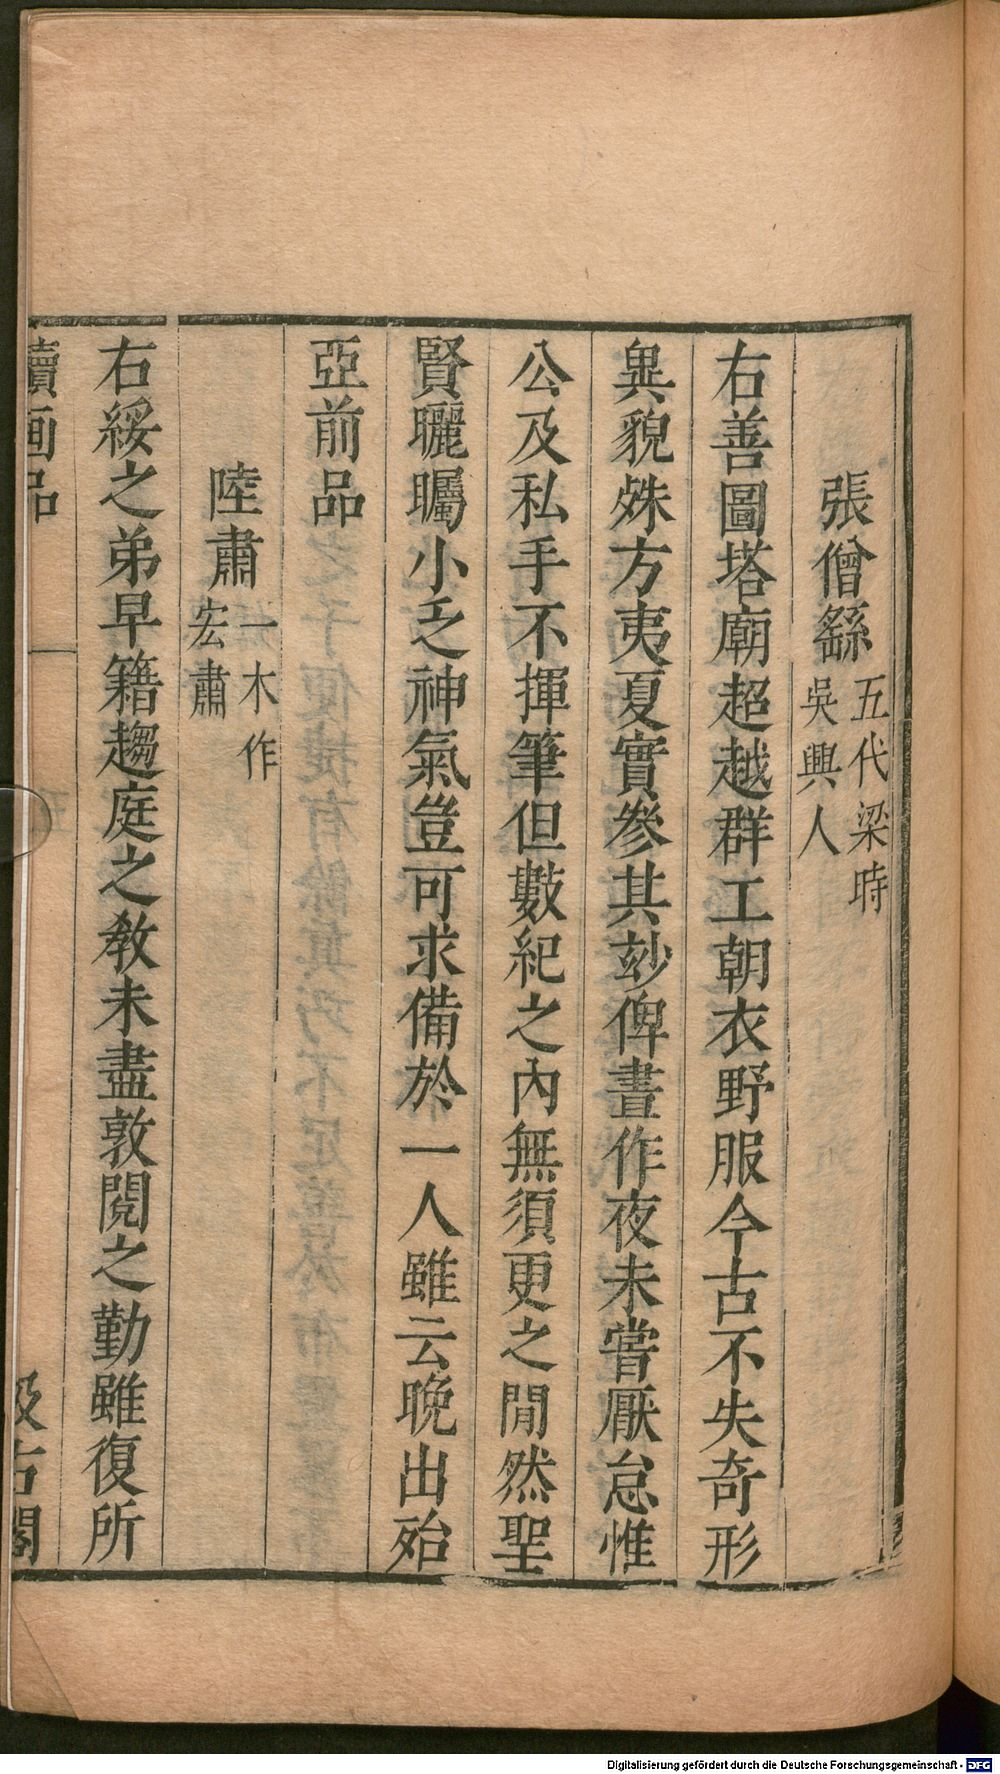 張僧繇五代梁時吳興人
右善圖塔廟超越群工朝衣野服今古不失奇形
異貌殊方夷夏實參其玅俾晝作夜未嘗厭怠惟
公及私手不揮筆但數紀之內無須更之閒然聖
賢矖矚小乏神氣豈可求備於一人雖云晚出殆
亞前品
陸肅一木作宏肅
右綏之弟早籍趨庭之敎未盡敦閱之勤雖復所
續画品
汲古閣
Digitalisierung gefördert durch die Deutsche Forschungsgemeinschaft - DFG